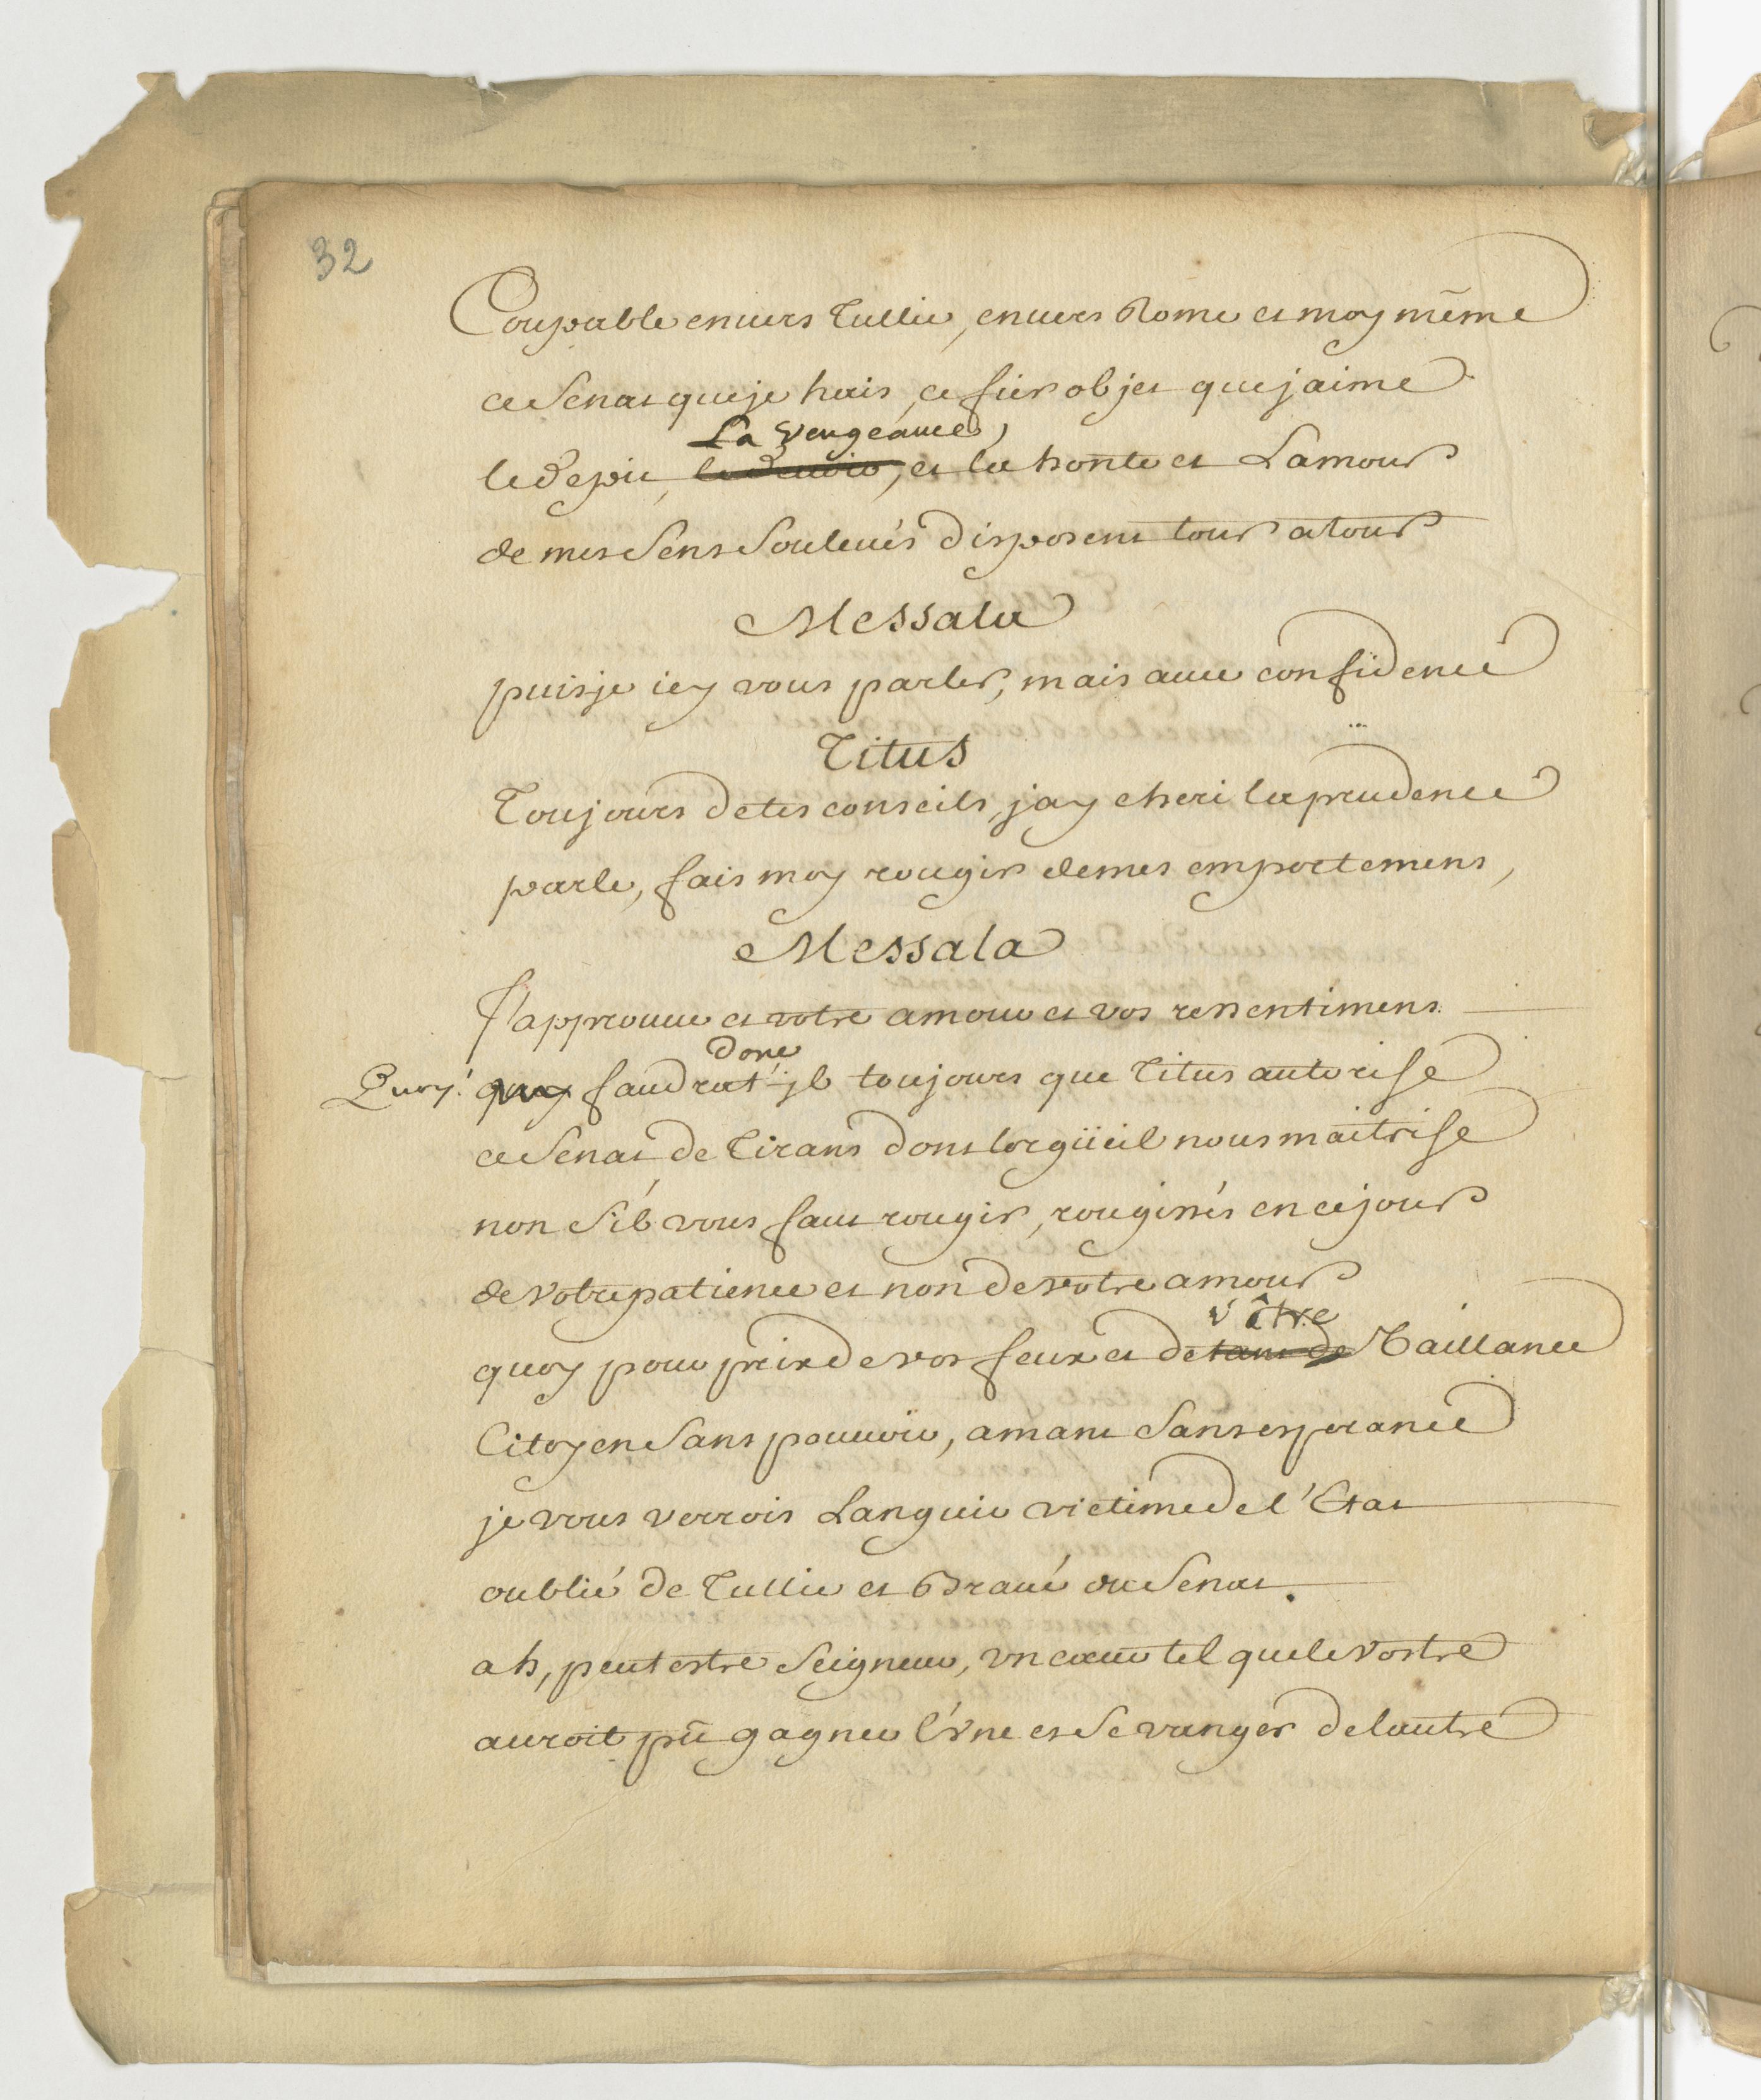 32
Coupable enuers Tullie, enuers Rome et moy mēme
ce Senat que je hais, ce fier objet que jaime
La Vengeance,
le depit, le devoir, et la honte et Lamour
de mes Sens Souleués disposent tour a tour
Messala
puis je icy vous parler, mais auec confidence
Titus
Toujours de tes conseils, jay cheri la prudence
parle, fais moy rougir de mes emportemens,
Messala
J'approuue et votre amour et vos ressentimens
donc
Quoy! quoy faudrat-jl toujours que Titus autorise
ce Senat de Tirans dont lorgüeil nous maitrise
non S'il vous faut rougir, rougissés en ce jour
de votre patience et non de votre amour
vôtre
quoy pour prix de vos feux et de tant de Vaillance
Citoyen Sans pouuoir, amant Sans esperance
je vous verrois Languir victime de l'Etat
oublié de Tullie et Braué du Senat.
ah, peut estre Seigneur, vn cœur tel que le Vostre
auroit pū gagner l'vne et Se vanger de lautre